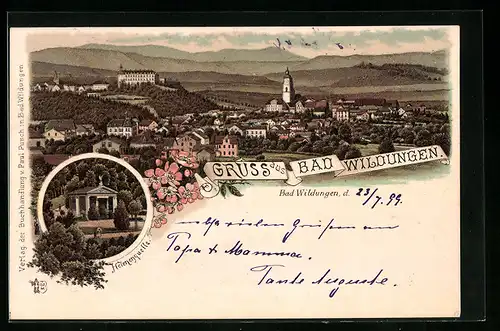 GRUSS AUS BAD WILDUNGEN
Bad Wildungen, d. 23/7.99.
Verlag der Buchhandlung v. Paul Pusch in Bad Wildungen
Helenenquelle
herzlichen Grüßen an
Papa & Mamma.
Tante Auguste.